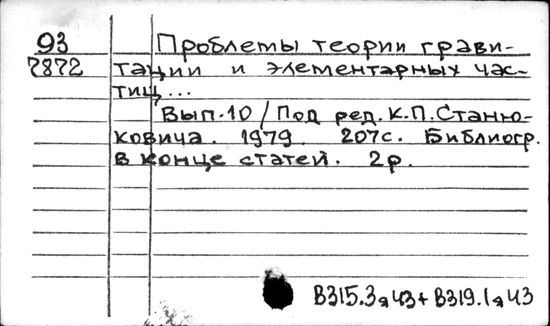 93 Проблемы теории грави-
7872 тации и элементарных час-
тиц...
Вып.10/Под ред. К.П.Станю-
ковича. 1979. 207с. Библиогр.
в конце статей. 2р.
В315.3я43+В319.1я43